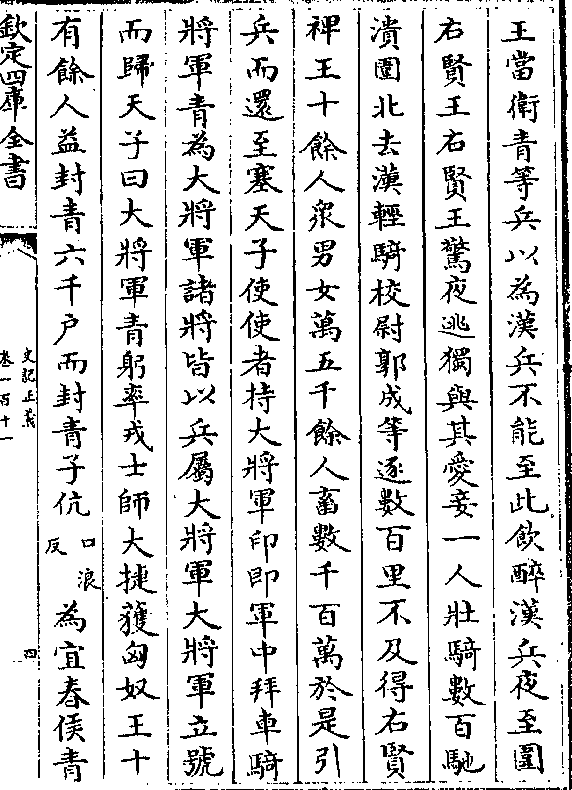 王當衛青等兵以為漢兵不能至此飲醉漢兵夜至圍
右賢王右賢王驚夜逃獨與其愛妾一人壯騎數百馳
潰圍北去漢輕騎校尉郭成等逐數百里不及得右賢
裨王十餘人衆男女萬五千餘人畜數千百萬於是引
兵而還至塞天子使使者持大將軍印即軍中拜車騎
將軍青為大將軍諸將皆以兵屬大將軍大將軍立號
而歸天子曰大將軍青躬率戎士師大捷獲匈奴王十
有餘人益封青六千户而封青子伉口浪反為宜春侯青
欽定四庫全書
史記正義
卷一百十一
四